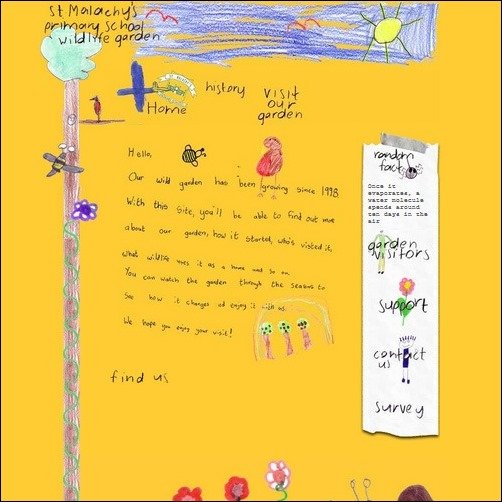 St Malachy's
primary school
wildlife garden
Home
history
visit
our
garden
Hello,
Our wild garden has been growing since 1998
With this site, you'll be able to find out more
about our garden, how it started, who's visited it,
what wildlife uses it as a home and so on.
You can watch the garden through the seasons to
see how it changes and enjoy it with us.
We hope you enjoy your visit!
find us
random
fact
Once it
evaporates, a
water molecule
spends around
ten days in the
air
garden
visitors
support
contact
us
survey